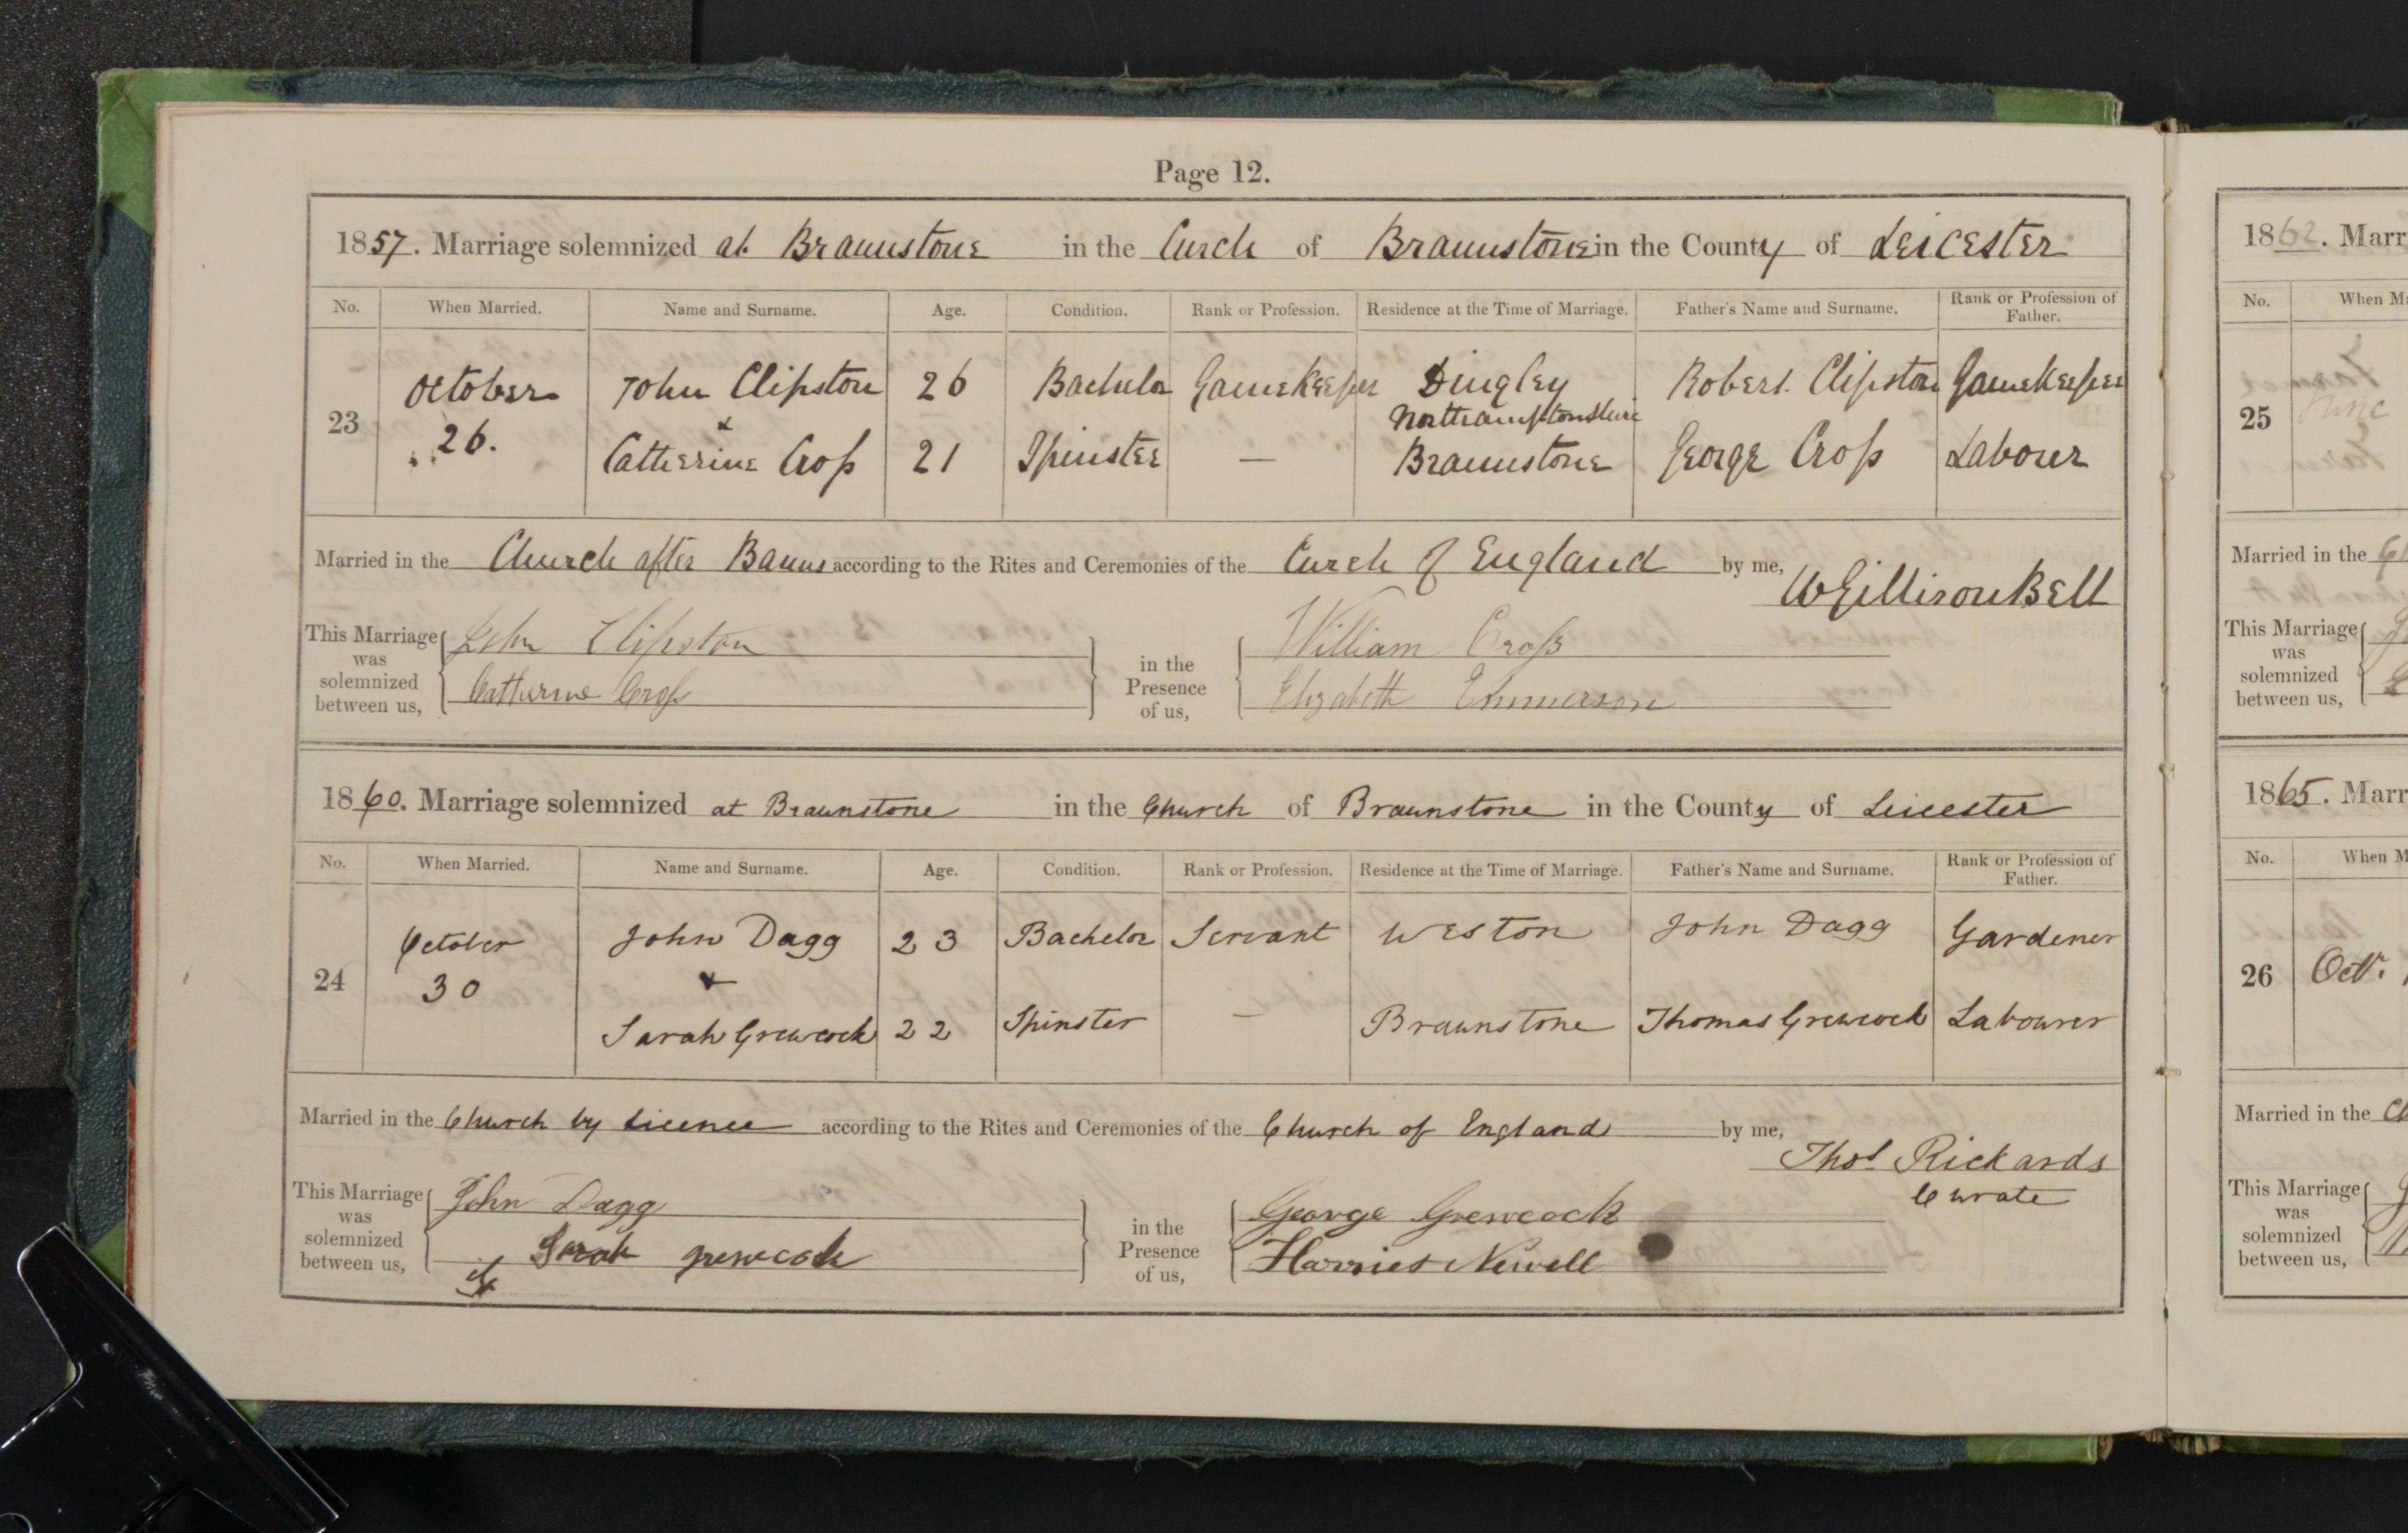 Page 12.
1857. Marriage solemnized at Braunstone in the Curch of Braunstone in the County of Leicester
No. When Married. Name and Surname. Age. Condition. Rank or Profession. Residence at the Time of Marriage. Father's Name and Surname. Rank or Profession of Father.
23 October 26. John Clipston 26 Bachelor Gamekeeper Dingley Northamptonshire Robert Clipston Gamekeeper
&
Catherine Croſs 21 Spinster — Braunstone George Croſs Labourer
Married in the Church after Banns according to the Rites and Ceremonies of the Curch of England by me, W Gillison Bell
This Marriage was solemnized between us, John Clipston Catherine Croſs in the Presence of us, William Croſs Elizabeth Emmerson
1860. Marriage solemnized at Braunstone in the Church of Braunstone in the County of Leicester
No. When Married. Name and Surname. Age. Condition. Rank or Profession. Residence at the Time of Marriage. Father's Name and Surname. Rank or Profession of Father.
24 October 30 John Dagg 23 Bachelor Servant Weston John Dagg Gardener
&
Sarah Grewcock 22 Spinster — Braunstone Thomas Grewcock Labourer
Married in the Church by Licence according to the Rites and Ceremonies of the Church of England by me, Thos. Rickards
Curate
This Marriage was solemnized between us, John Dagg Sarah grewcock in the Presence of us, George Grewcock Harriet Newell
1862. Marr
No. When M
25
Married in the
This Marriage was solemnized between us,
1865. Marr
No. When M
26 Octr.
Married in the
This Marriage was solemnized between us,